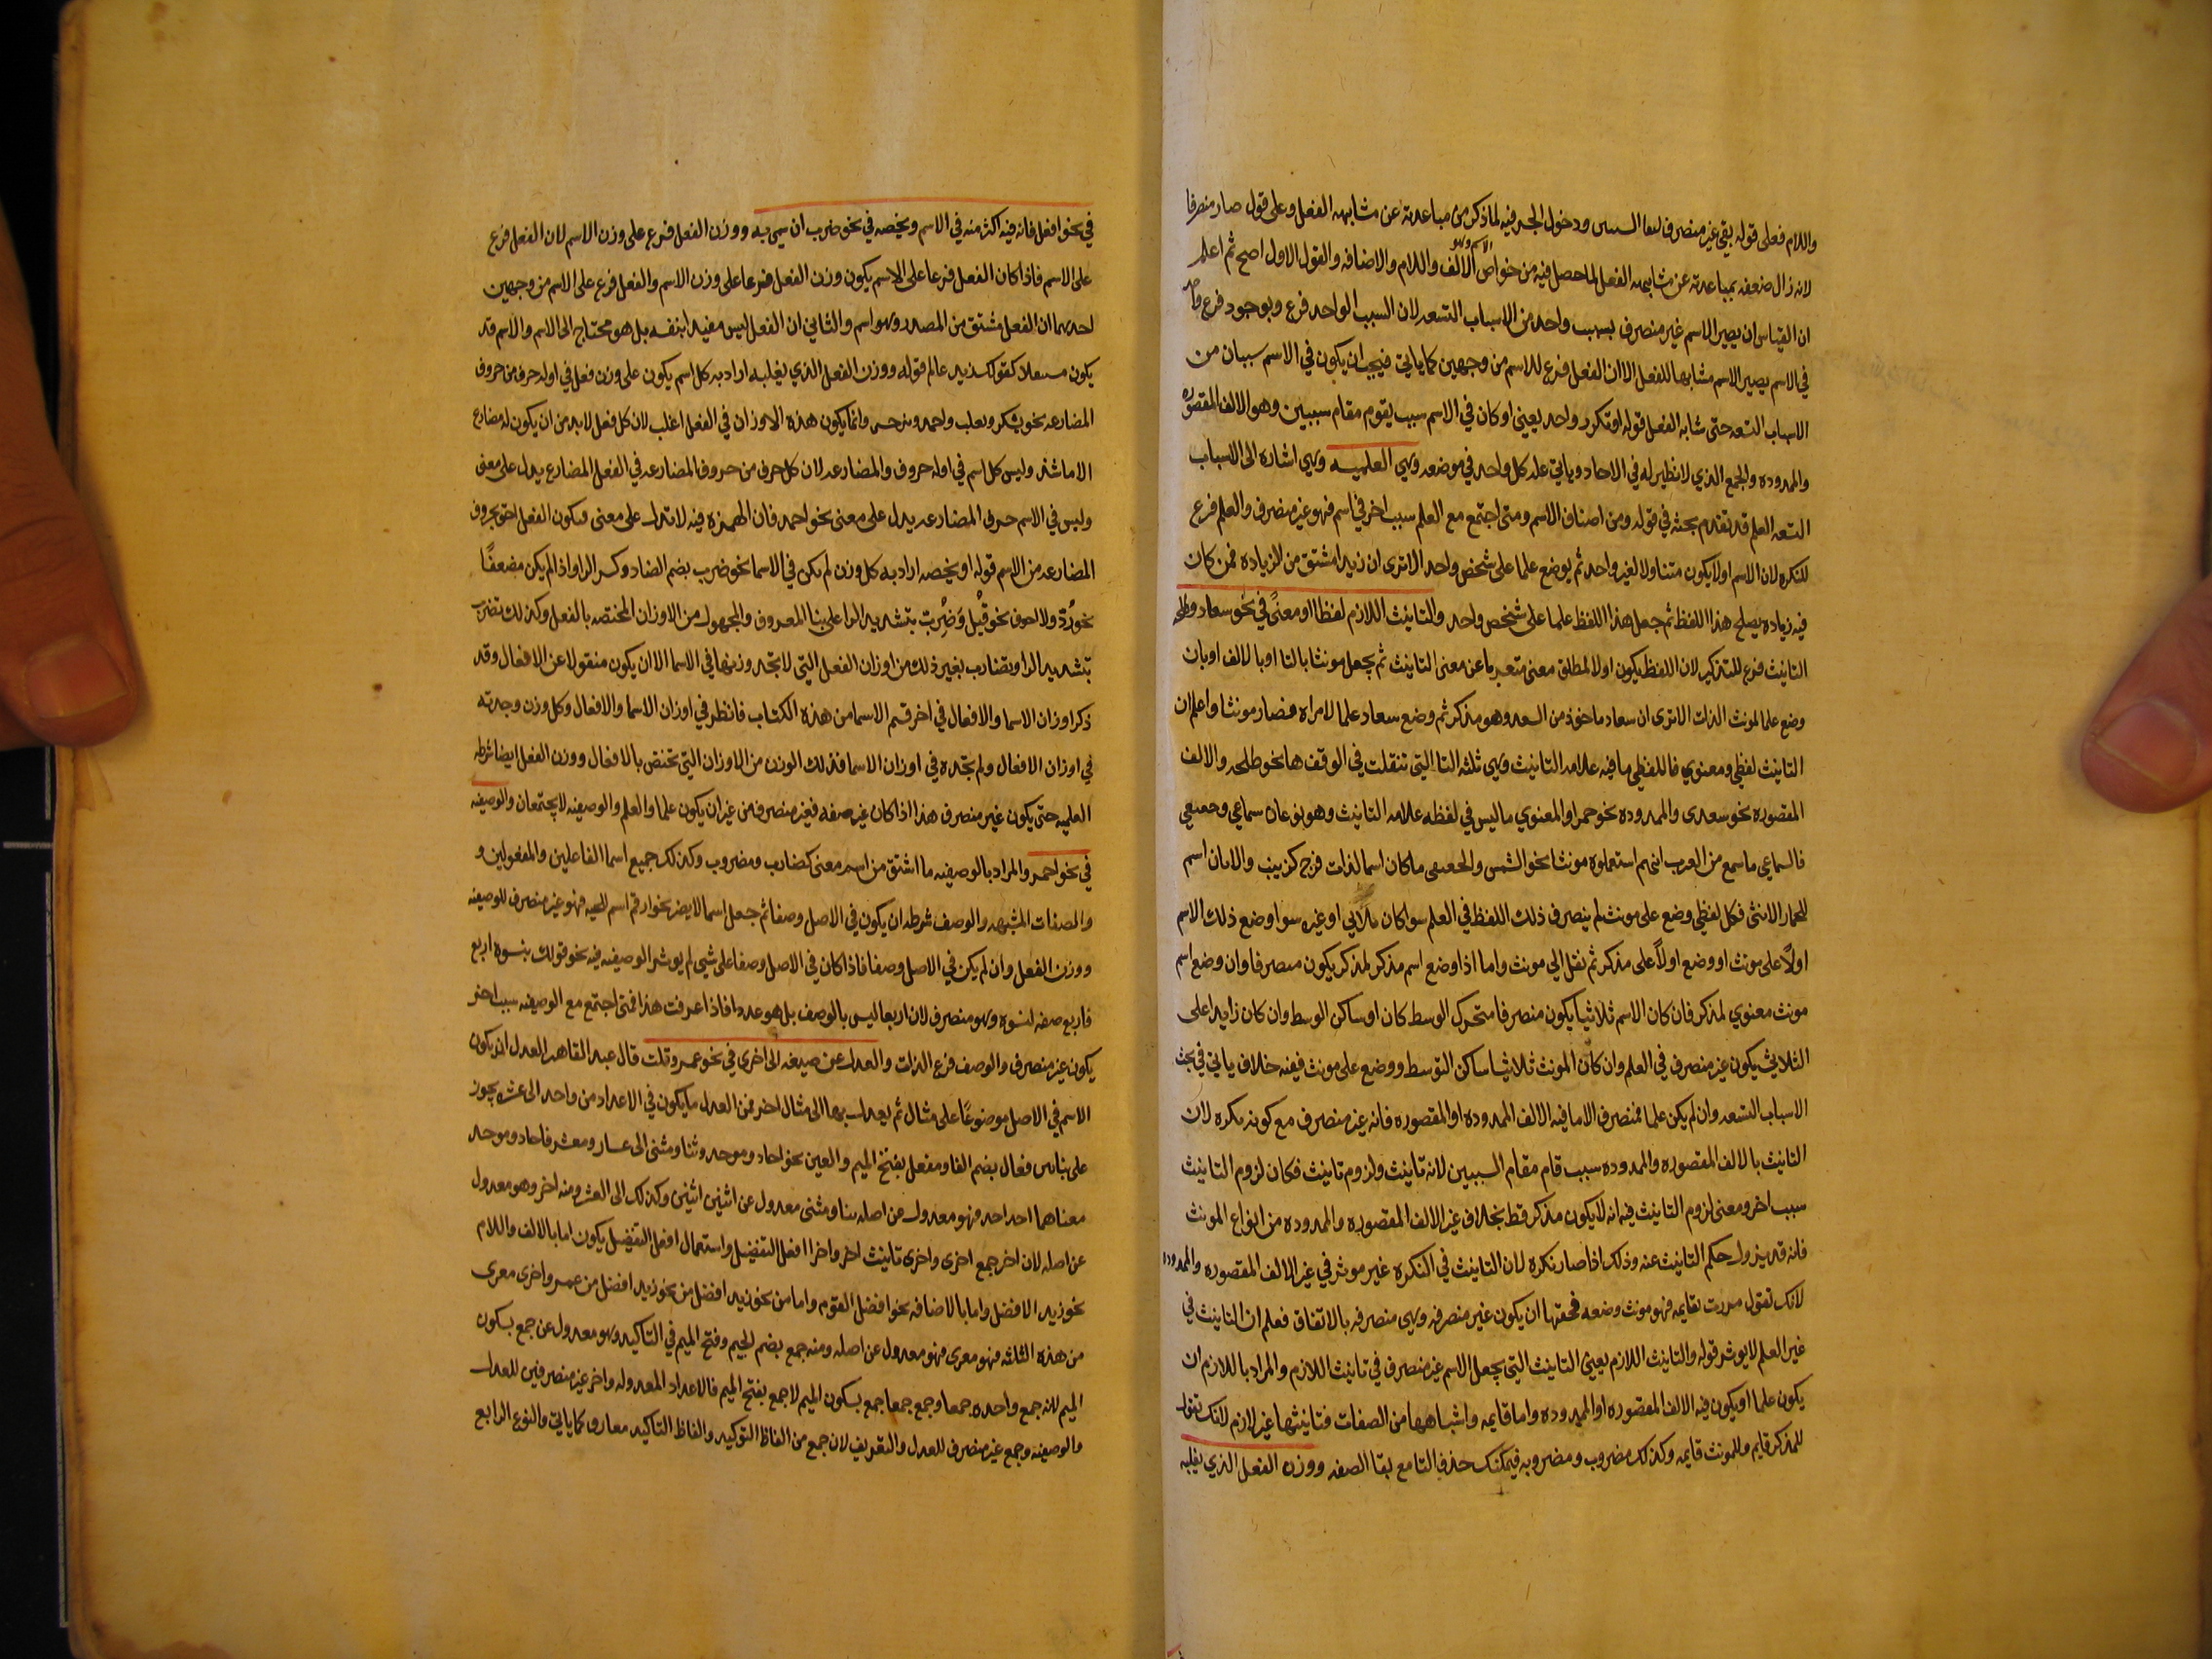 واللام فعلى قوله بقي غير منصرف لبقا السببين ودخول الجر فيه لما ذكر من مباعدته عن مشابهه الفعل وعلى قول صار منصرفا
لانه زال ضعفه بمباعدته عن مشابهه الفعل لما حصل فيه من خواص الاسم وهو الالف واللام والاضافه والقول الاول اصح ثم اعلم
ان القياس ان يصير الاسم غير منصرف بسبب واحد من الاسباب التسعه لان السبب الواحد فرع وبوجود فرع واحد
في الاسم يصير الاسم مشابها للفعل الا ان الفعل فرع للاسم من وجهين كما ياتي فيجب ان يكون في الاسم سببان من
الاسباب التسعه حتى شابه الفعل قوله او تكرر واحد يعني او كان في الاسم سبب يقوم مقام سببين وهو الالف المقصوره
والممدوده والجمع الذي لا نظير له في الاحاد وياتي عله كل واحد في موضعه وهي العلميه وهي اشاره الى الاسباب
التسعه العلم قد تقدم بحثه في قوله ومن اصناف الاسم ومتى اجتمع مع العلم سبب اخر في اسم فهو غير منصرف والعلم فرع
للنكره لان الاسم اولا يكون متناولا لغير واحد ثم يوضع علما على شخص واحد الا ترى ان زيدا مشتق من الزياده فمن كان
فيه زياده يصلح هذا اللفظ ثم جعل هذا اللفظ علما على شخص واحد والتانيث اللازم لفظا او معنىً في نحو سعاد وطلحه
التانيث فرع للتذكير لان اللفظ يكون اولا لمطلق معنى متعبر ما عن معنى التانيث ثم يجعل مونثا بالتا او بالالف او بان
وضع علما لمونث الذات الا ترى ان سعاد ماخوذ من السعد وهو مذكر ثم وضع سعاد علما لامراه فصار مونثا واعلم ان
التانيث لفظي ومعنوي فاللفظي ما فيه علامه التانيث وهي ثلثه التا التي تنقلت في الوقف ها نحو طلحه والالف
المقصوره نحو سعدى والممدوده نحو حمرا والمعنوي ما ليس في لفظه علامه التانيث وهو نوعان سماعي وحقيقي
فالسماعي ما سمع من العرب انهم استعملوه مونثا نحو الشمس والحقيقي ما كان اسما لذات فرج كزينب والاتان اسم
للحمار الانثى فكل لفظي وضع على مونث لم ينصرف ذلك اللفظ في العلم سوا كان ثلاثي او غيره سوا وضع ذلك الاسم
اولاً على مونث او وضع اولاً على مذكر ثم نقل الي مونث واما اذا وضع اسم مذكر لمذكر يكون منصرفا وان وضع اسم
مونث معنوي لمذكر فان كان الاسم ثلاثيا يكون منصرفا متحرك الوسط كان او ساكن الوسط وان كان زايدا على
الثلاثي يكون غير منصرف في العلم وان كان المونث ثلاثيا ساكن التوسط ووضع على مونث ففيه خلاف ياتي في بحث
الاسباب التسعه وان لم يكن علما فمنصرف الا ما فيه الالف الممدوده او المقصوره فانه غير منصرف مع كونه نكره لان
التانيث بالالف المقصوره والممدوده سبب قام مقام السببين لانه تانيث ولزوم تانيث فكان لزوم التانيث
سبب اخر ومعنى لزوم التانيث فيه انه لا يكون مذكر قط بخلاف غير الالف المقصوره والممدوده من انواع المونث
فانه قد يزول حكم التانيث عنه وذلك اذا صار نكره لان التانيث في النكره غير موثر في غير الالف المقصوره والممدوده
لانك تقول مررت بقايمه فهو مونث وضعه فحقها ان يكون غير منصرفه وهي منصرفه بالاتفاق فعلم ان التانيث في
غير العلم لا يوثر قوله والتانيث اللازم يعني التانيث التي يجعل الاسم غير منصرف في تانيث اللازم والمراد باللازم ان
يكون علما او يكون فيه الالف المقصوره او الممدوده واما قايمه واشباهها من الصفات فتانيثها غير لازم لانك تقول
للمذكر قايم وللمونث قايمه وكذلك مضروب ومضروبه فيمكنك حذف التا مع بقا الصفه ووزن الفعل الذي يغلبه
في نحو افعل فانه فيه اكثر منه في الاسم ويخصه في نحو ضرب ان سمي به ووزن الفعل فرع على وزن الاسم لان الفعل فرع
على الاسم فاذا كان الفعل فرعا على الاسم يكون وزن الفعل فرعا على وزن الاسم والفعل فرع على الاسم من وجهين
احدهما ان الفعل مشتق من المصدر وهو اسم والثاني ان الفعل ليس مفيدا بنفسه بل هو محتاج الى الاسم والاسم قد
يكون كقولك زيد عالم قوله ووزن الفعل الذي يغلبه اراد به كل اسم يكون على وزن فعل في اوله حرف من حروف
المضارعه نحو يشكر وتغلب واحمد ونرجس وانما يكون هذه الاوزان في الفعل اغلب لان كل فعل لابد من ان يكون له مضارع
الا ما شذ وليس كل اسم في اوله حروف والمضارعه لان كل حرف من حروف المضارعه في الفعل المضارع يدل على معنى
وليس في الاسم حرف المضارعه يدل على معنى نحو احمد فان الهمزه فيه لا تدل على معنى فيكون الفعل احق بحروف
المضارعه من الاسم قوله او يخصه اراد به كل وزن لم يكن في الاسما نحو ضرب بضم الضاد وكسر الرا واذا لم يكن مضعفًا
نحو رُدّ ولا اجوف نحو قِيْل وَضُرِبَ بتشديد الرا على بنا المعروف والمجهول من الاوزان المختصه بالفعل وكذلك تضرب
بتشديد الرا ويضارب بغير ذلك من اوزان الفعل التي لا تجد وزنها في الاسما الا ان يكون منقولا عن الافعال وقد
ذكر اوزان الاسما والافعال في اخر قسم الاسما من هذه الكتاب فانظر في اوزان الاسما والافعال وكل وزن وجدته
في اوزان الافعال ولم تجده في اوزان الاسما فذلك الوزن من الاوزان التي تختص بالافعال ووزن الفعل ايضا شرطه
العلميه حتى يكون غير منصرف هذا اذا كان غير صفه فغير منصرف من غير ان يكون علما والعلم والوصفيه لا يجتمعان والوصفيه
في نحو احمر والمراد بالوصفيه ما اشتق من اسم معنى كضارب ومضروب وكذلك جميع اسما الفاعلين والمفعولين و
والصفات المشبهه والوصف شرطه ان يكون في الاصل وصفا ثم جعل اسما لا يضر نحو ارقم اسم للحيه فهو غير منصرف للوصفيه
ووزن الفعل وان لم يكن في الاصل وصفا فاذا كان في الاصل وصفا على شي لم يوثر الوصفيه فيه نحو قولك بنسوه اربع
فاربع صفه لنسوه وهو منصرف لان اربعا ليس بالوصف بل هو عدد فاذا عرفت هذا فمتى اجتمع مع الوصفيه سبب اخر
يكون غير منصرف والوصف فرع الذات والعدل عن صيغه الى اخرى في نحو عمر وثلث قال عبد القاهر العدل ان يكون
الاسم في الاصل موضوعًا على مثال ثم يعدل بها الى مثال اخر فمن العدل ما يكون في الاعداد من واحد الى عشره يجوز
على بنائين فعال بضم الفا ومفعل بفتح الميم والعين نحو احاد وموحد وثنا ومثنى الى عشار ومعشر فاحاد وموحد
معناهما احد احد فهو معدول من اصله ثنا ومثنى معدول عن اثنين اثنين وكذلك الى العشر ومنه اخر وهو معدول
عن اصله لان اخر جمع اخرى واخرى تانيث اخر واخر افعل التفضيل واستعمال افعل التفضيل يكون اما بالالف واللام
نحو زيد الافضل واما بالاضافه نحو افضل القوم واما من نحو زيد افضل من نحو زيد افضل من عمر واخرى معرى
من هذه الثلثه فهو معرى فهو معدول عن اصله ومنه جمع بضم الجيم وفتح الميم في التاكيد وهو معدول عن جمع بسكون
الميم لانه جمع واحده جمعا وجمع جمعا جمع بسكون الميم لا جمع بفتح الميم فالاعداد المعدوله واخر غير منصرفين للعدل
والوصفيه وجمع غير منصرف للعدل والتعريف لان جمع من الفاظ التوكيد والفاظ التاكيد معارف كما ياتي والنوع الرابع